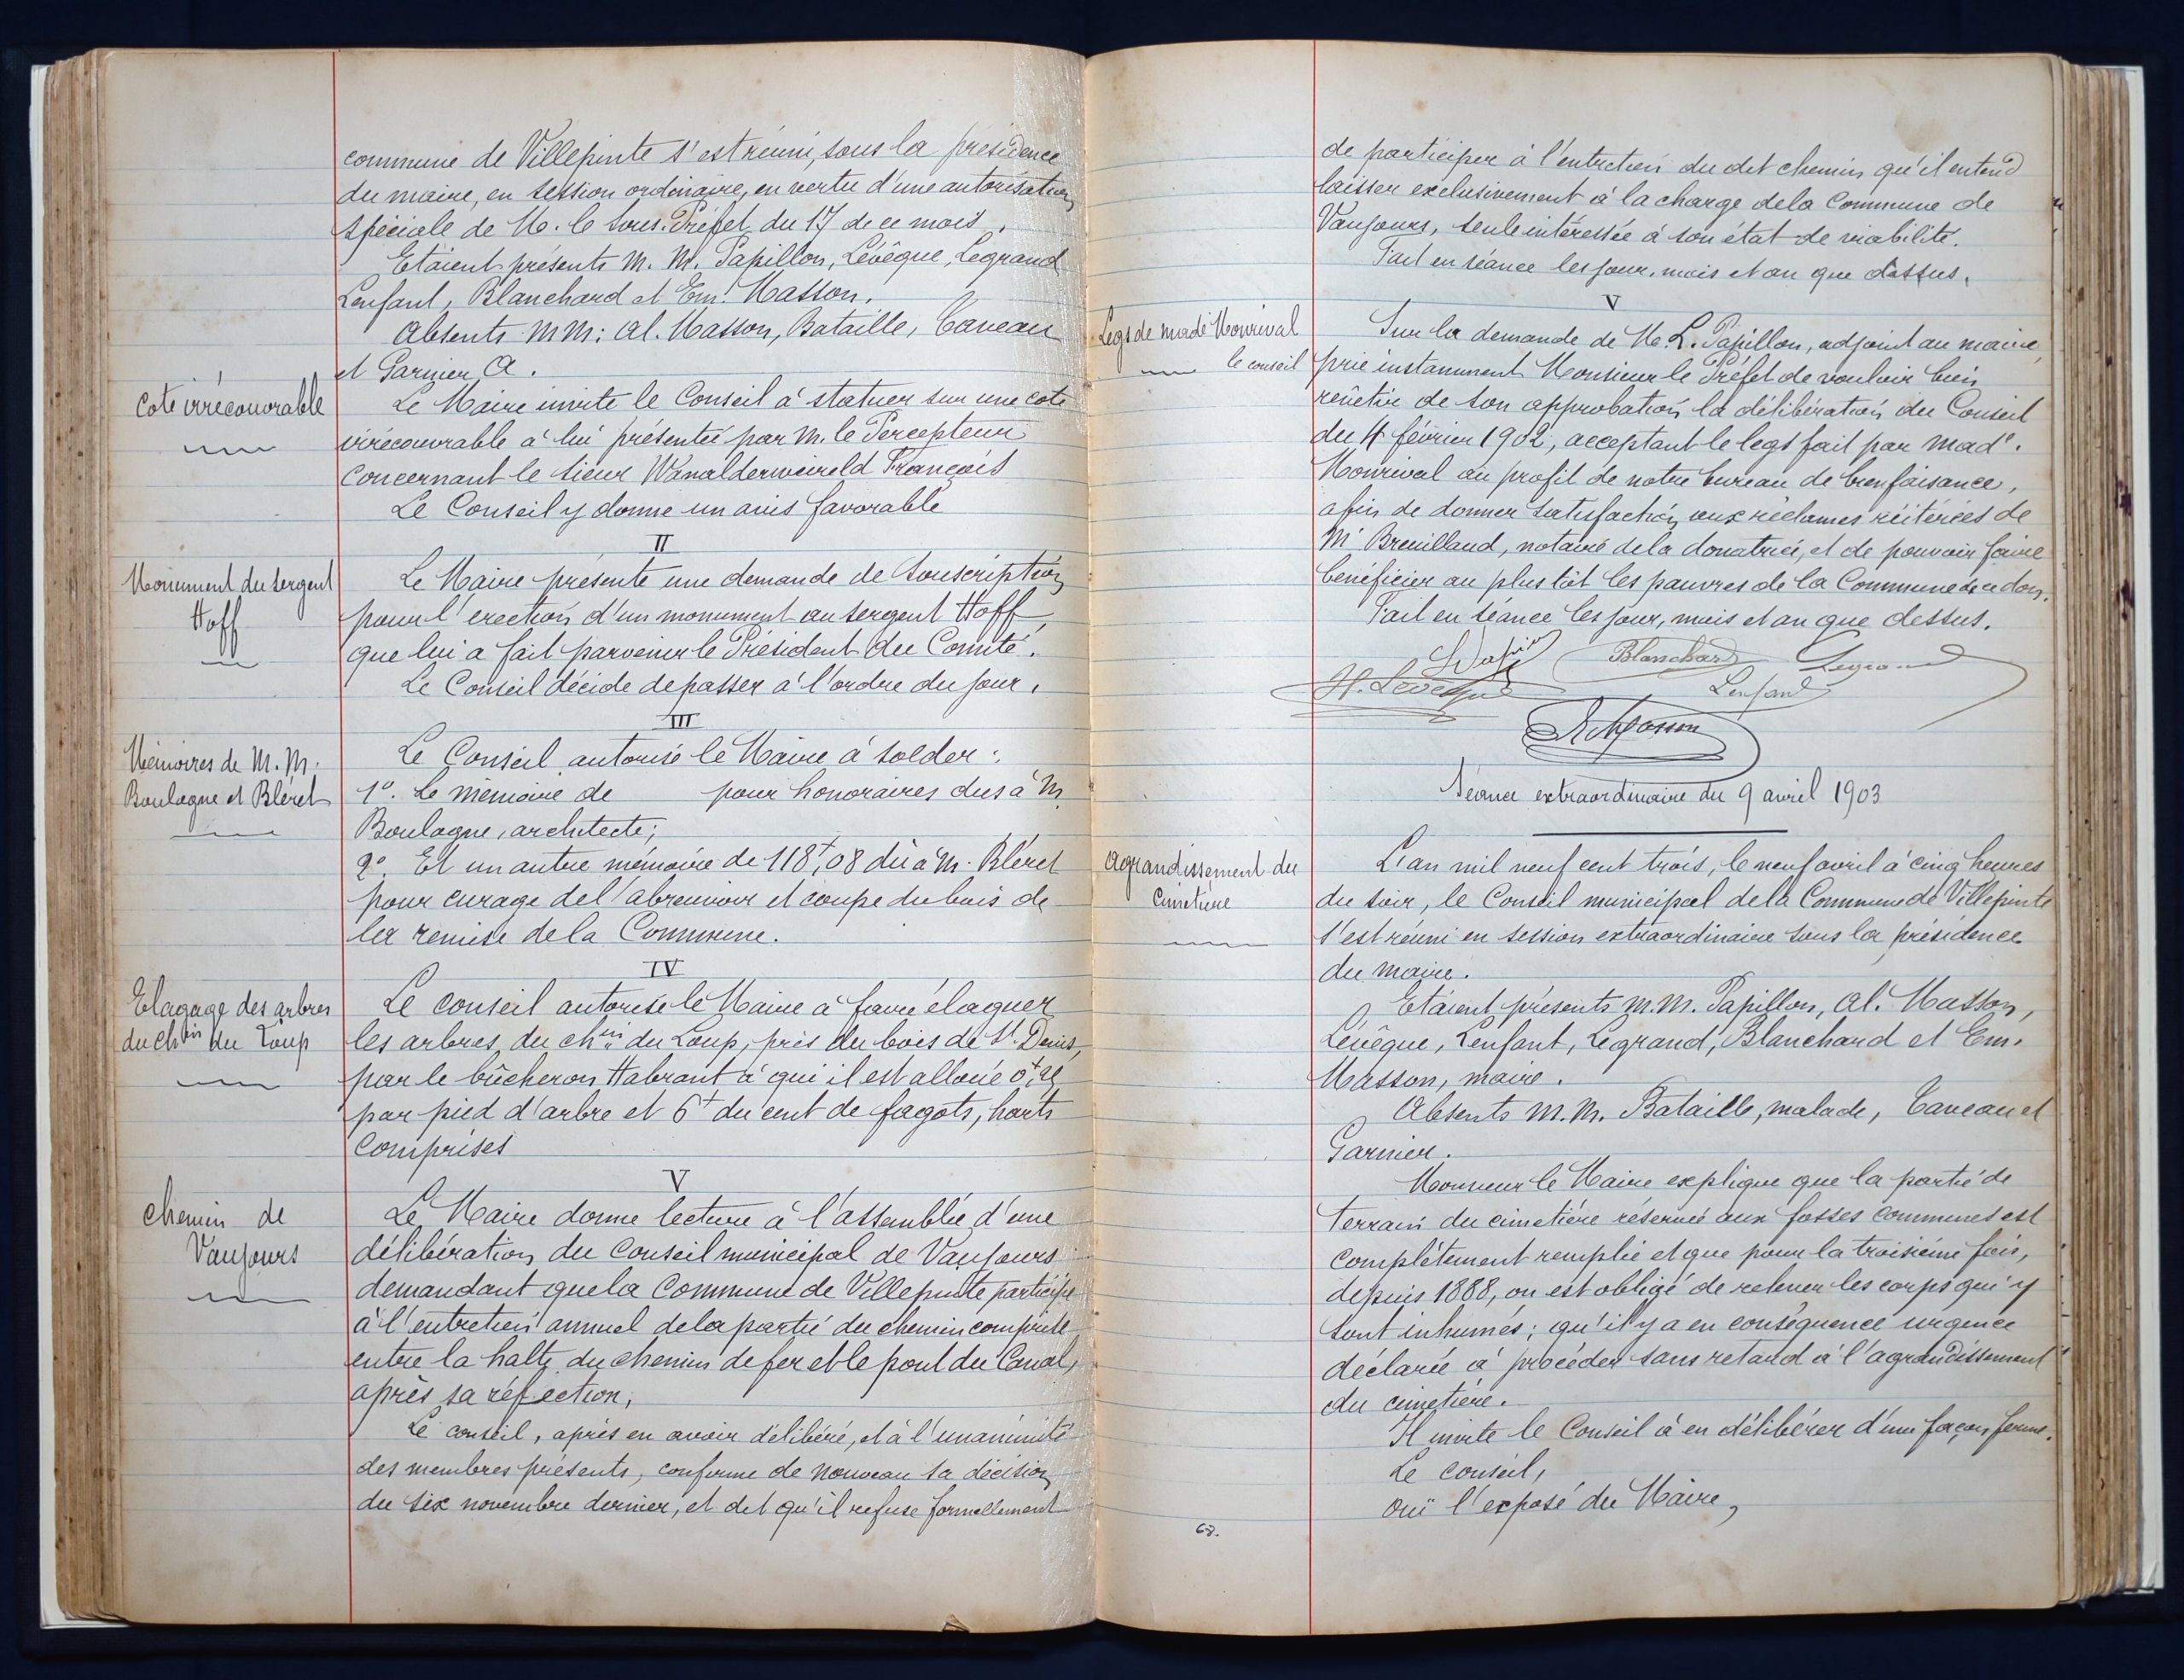 commune de Villepinte s'est réuni, sous la présidence
du maire, en session ordinaire, en vertu d'une autorisation
spéciale de M. le Sous-Préfet du 17 de ce mois.
Etaient présents M. M. Papillon, Lévêque, Legrand
Lenfant, Blanchard et Em. Masson.
Absents MM: Al. Masson, Bataille, Caveau
et Garnier A.
Cote irrécouvrable
Le Maire invite le Conseil à statuer sur une cote
irrécouvrable à lui présentée par M. le Percepteur
concernant le sieur Wanalderweireld François
Le Conseil y donne un avis favorable
II
Monument du sergent
Hoff
Le Maire présente une demande de souscription
pour l'erection d'un monument au sergent Hoff,
que lui a fait parvenir le Président du Comité.
Le Conseil décide de passer à l'ordre du jour.
III
Mémoires de M. M.
Boulogne et Bléret
Le Conseil autorise le Maire à solder:
1°. Le mémoire de pour honoraires dus à M.
Boulogne, architecte;
2°. Et un autre mémoire de 118f,08 dû à M. Bléret
pour curage de l'abreuvoir et coupe du bois de
la remise de la Commune.
IV
Elagage des arbres
du chin du Loup
Le conseil autorise le Maire à faire élaguer
les arbres du chin du Loup, près du bois de St. Denis,
par le bûcheron Habrant à qui il est alloué
par pied d'arbre et 6f du cent de fagots, harts
comprises
V
chemin de
Vaujours
Le Maire donne lecture à l'assemblée d'une
délibération du Conseil municipal de Vaujours
demandant que la Commune de Villepinte participe
à l'entretien annuel de la partie du chemin comprise
entre la halte du chemin de fer et le pont du Canal,
après sa réfection,
Le conseil, après en avoir délibéré, et à l'unanimité
des membres présents, confirme de nouveau sa décision
du six novembre dernier, et dit qu'il refuse formellement
de participer à l'entretien du dit chemin qu'il entend
laisser exclusivement à la charge de la Commune de
Vaujours, seule intéressée à son état de viabilité.
Fait en séance les jour, mois et an que dessus.
V
Legs de made Monrival
Sur la demande de M. L. Papillon, adjoint au maire,
le conseil prie instamment Monsieur le Préfet de vouloir bien
revêtir de son approbation la délibération du Conseil
du 4 février 1902, acceptant le legs fait par made.
Monrival au profit de notre bureau de bienfaisance,
afin de donner satisfaction aux réclames réitérées de
Me Breuilland, notaire de la donatrice, et de pouvoir faire
bénéficier au plus tôt les pauvres de la Commune de ce don.
Fait en séance les jour, mois et an que dessus.
Blanchard Legrand
H. Lévêque Lenfant
Masson
Séance extraordinaire du 9 avril 1903
Agrandissement du
Cimetière
L'an mil neuf cent trois, le neuf avril à cinq heures
du soir, le Conseil municipal de la Commune de Villepinte
s'est réuni en session extraordinaire sous la présidence
du maire.
Etaient présents M. M. Papillon, Al. Masson,
Lévêque, Lenfant, Legrand, Blanchard et Em.
Masson, maire.
Absents M. M. Bataille, malade, Caveau et
Garnier.
Monsieur le Maire explique que la partie de
terrain du cimetière réservée aux fosses communes est
complètement remplie et que pour la troisième fois,
depuis 1888, on est obligé de relever les corps qui y
sont inhumés; qu'il y a en conséquence urgence
déclarée à procéder sans retard à l'agrandissement
du cimetière.
Il invite le Conseil à en délibérer d'une façon ferme.
Le conseil,
Ouï l'exposé du Maire,
68.